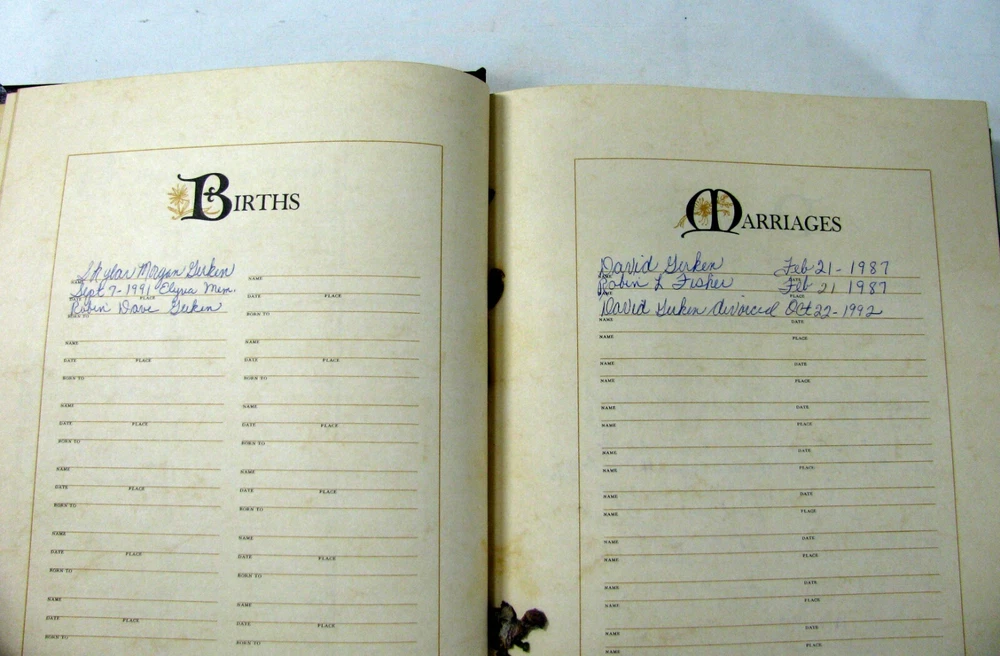 BIRTHS
Skylar Morgan Gerken
NAME
Sept 7-1991 Elyria Mem.
DATE PLACE
Robin Dave Gerken
BORN TO
NAME
DATE PLACE
BORN TO
NAME
DATE PLACE
BORN TO
NAME
DATE PLACE
BORN TO
NAME
DATE PLACE
BORN TO
NAME
DATE PLACE
BORN TO
NAME
DATE PLACE
BORN TO
NAME
DATE PLACE
BORN TO
NAME
DATE PLACE
BORN TO
NAME
DATE PLACE
BORN TO
NAME
DATE PLACE
BORN TO
NAME
DATE PLACE
BORN TO
MARRIAGES
David Gerken Feb 21-1987
NAME DATE
Robin L Fisher Feb 21 1987
NAME PLACE
David Gerken divorced Oct 22-1992
NAME DATE
NAME PLACE
NAME DATE
NAME PLACE
NAME DATE
NAME PLACE
NAME DATE
NAME PLACE
NAME DATE
NAME PLACE
NAME DATE
NAME PLACE
NAME DATE
NAME PLACE
NAME DATE
NAME PLACE